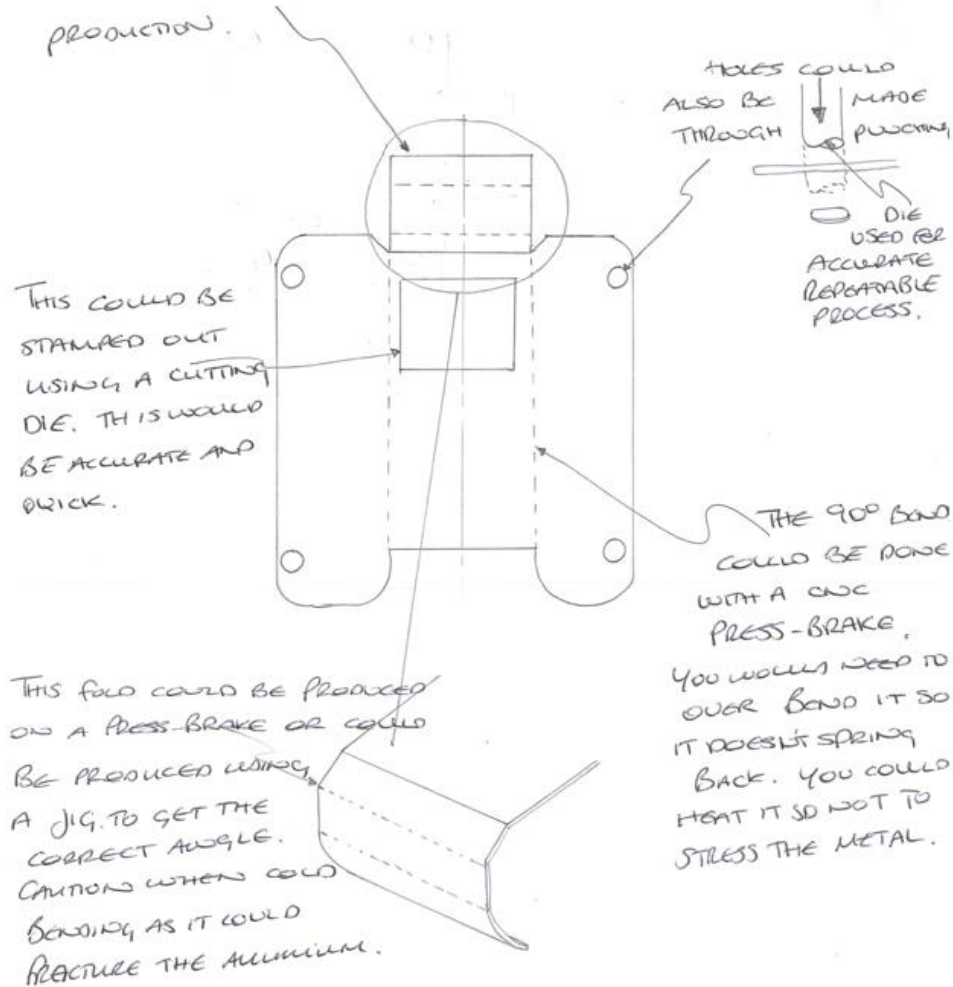 PRODUCTION.
HOLES COULD
ALSO BE MADE
THROUGH PUNCHING
DIE
USED FOR
ACCURATE
REPEATABLE
PROCESS.
THIS COULD BE
STAMPED OUT
USING A CUTTING
DIE. THIS WOULD
BE ACCURATE AND
QUICK.
THE 90° BEND
COULD BE DONE
WITH A CNC
PRESS-BRAKE.
YOU WOULD NEED TO
OVER BEND IT SO
IT DOESN'T SPRING
BACK. YOU COULD
HEAT IT SO NOT TO
STRESS THE METAL.
THIS FOLD COULD BE PRODUCED
ON A PRESS-BRAKE OR COULD
BE PRODUCED USING
A JIG. TO GET THE
CORRECT ANGLE.
CAUTION WHEN COLD
BENDING AS IT COULD
FRACTURE THE ALUMINIUM.